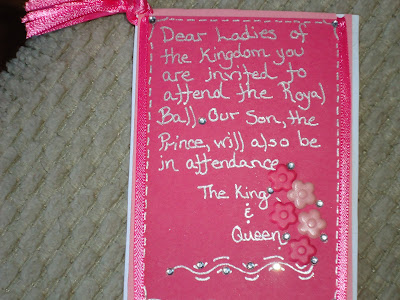 Dear Ladies of
the Kingdom you
are invited to
attend the Royal
Ball. Our Son, the
Prince, will also be
in attendance
The King
&
Queen